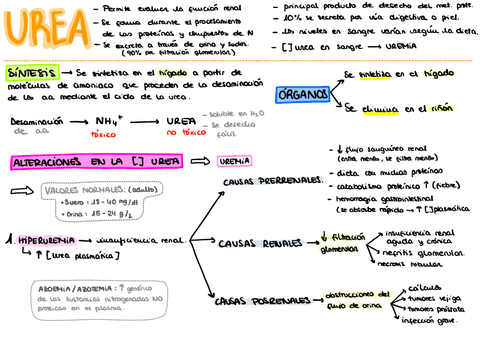 UREA
- Permite evaluar la función renal
- Se forma durante el procesamiento
de las proteínas y compuestos de N
- Se excreta a través de orina y sudor.
(90% por filtración glomerular)
- principal producto de desecho del met. prot.
- 10% se secreta por vía digestiva o piel.
- los niveles en sangre varían según la dieta.
- [ ] urea en sangre → UREMIA
SÍNTESIS → Se sintetiza en el hígado a partir de
moléculas de amoniaco que proceden de la desaminación
de los aa mediante el ciclo de la urea.
Desaminación → NH4+ → UREA
de aa
tóxico
no tóxico
- soluble en H2O
- Se desecha
fácil.
ÓRGANOS
Se sintetiza en el hígado
Se elimina en el riñón
ALTERACIONES EN LA [ ] UREA → UREMIA
VALORES NORMALES: (adulto)
• Suero: 18 - 40 mg/dl
• Orina: 15 - 24 g/L
1. HIPERUREMIA → insuficiencia renal.
↳ ↑ [urea plasmática]
AZOEMIA/AZOTEMIA: ↑ genérico
de las sustancias nitrogenadas NO
proteicas en el plasma.
CAUSAS PRERRENALES
- ↓ flujo sanguíneo renal
(entra menos, se filtra menos)
- dieta con muchas proteínas
- catabolismo proteínico ↑ (fiebre)
- hemorragia gastrointestinal
(se absorbe rápido → ↑ [ ] plasmática)
CAUSAS RENALES → ↓ filtración
glomerular
insuficiencia renal
aguda y crónica
nefritis glomerular.
necrosis tubular.
CAUSAS POSRENALES → obstrucciones del
flujo de orina.
cálculos
tumores vejiga
tumores próstata
infección grave.